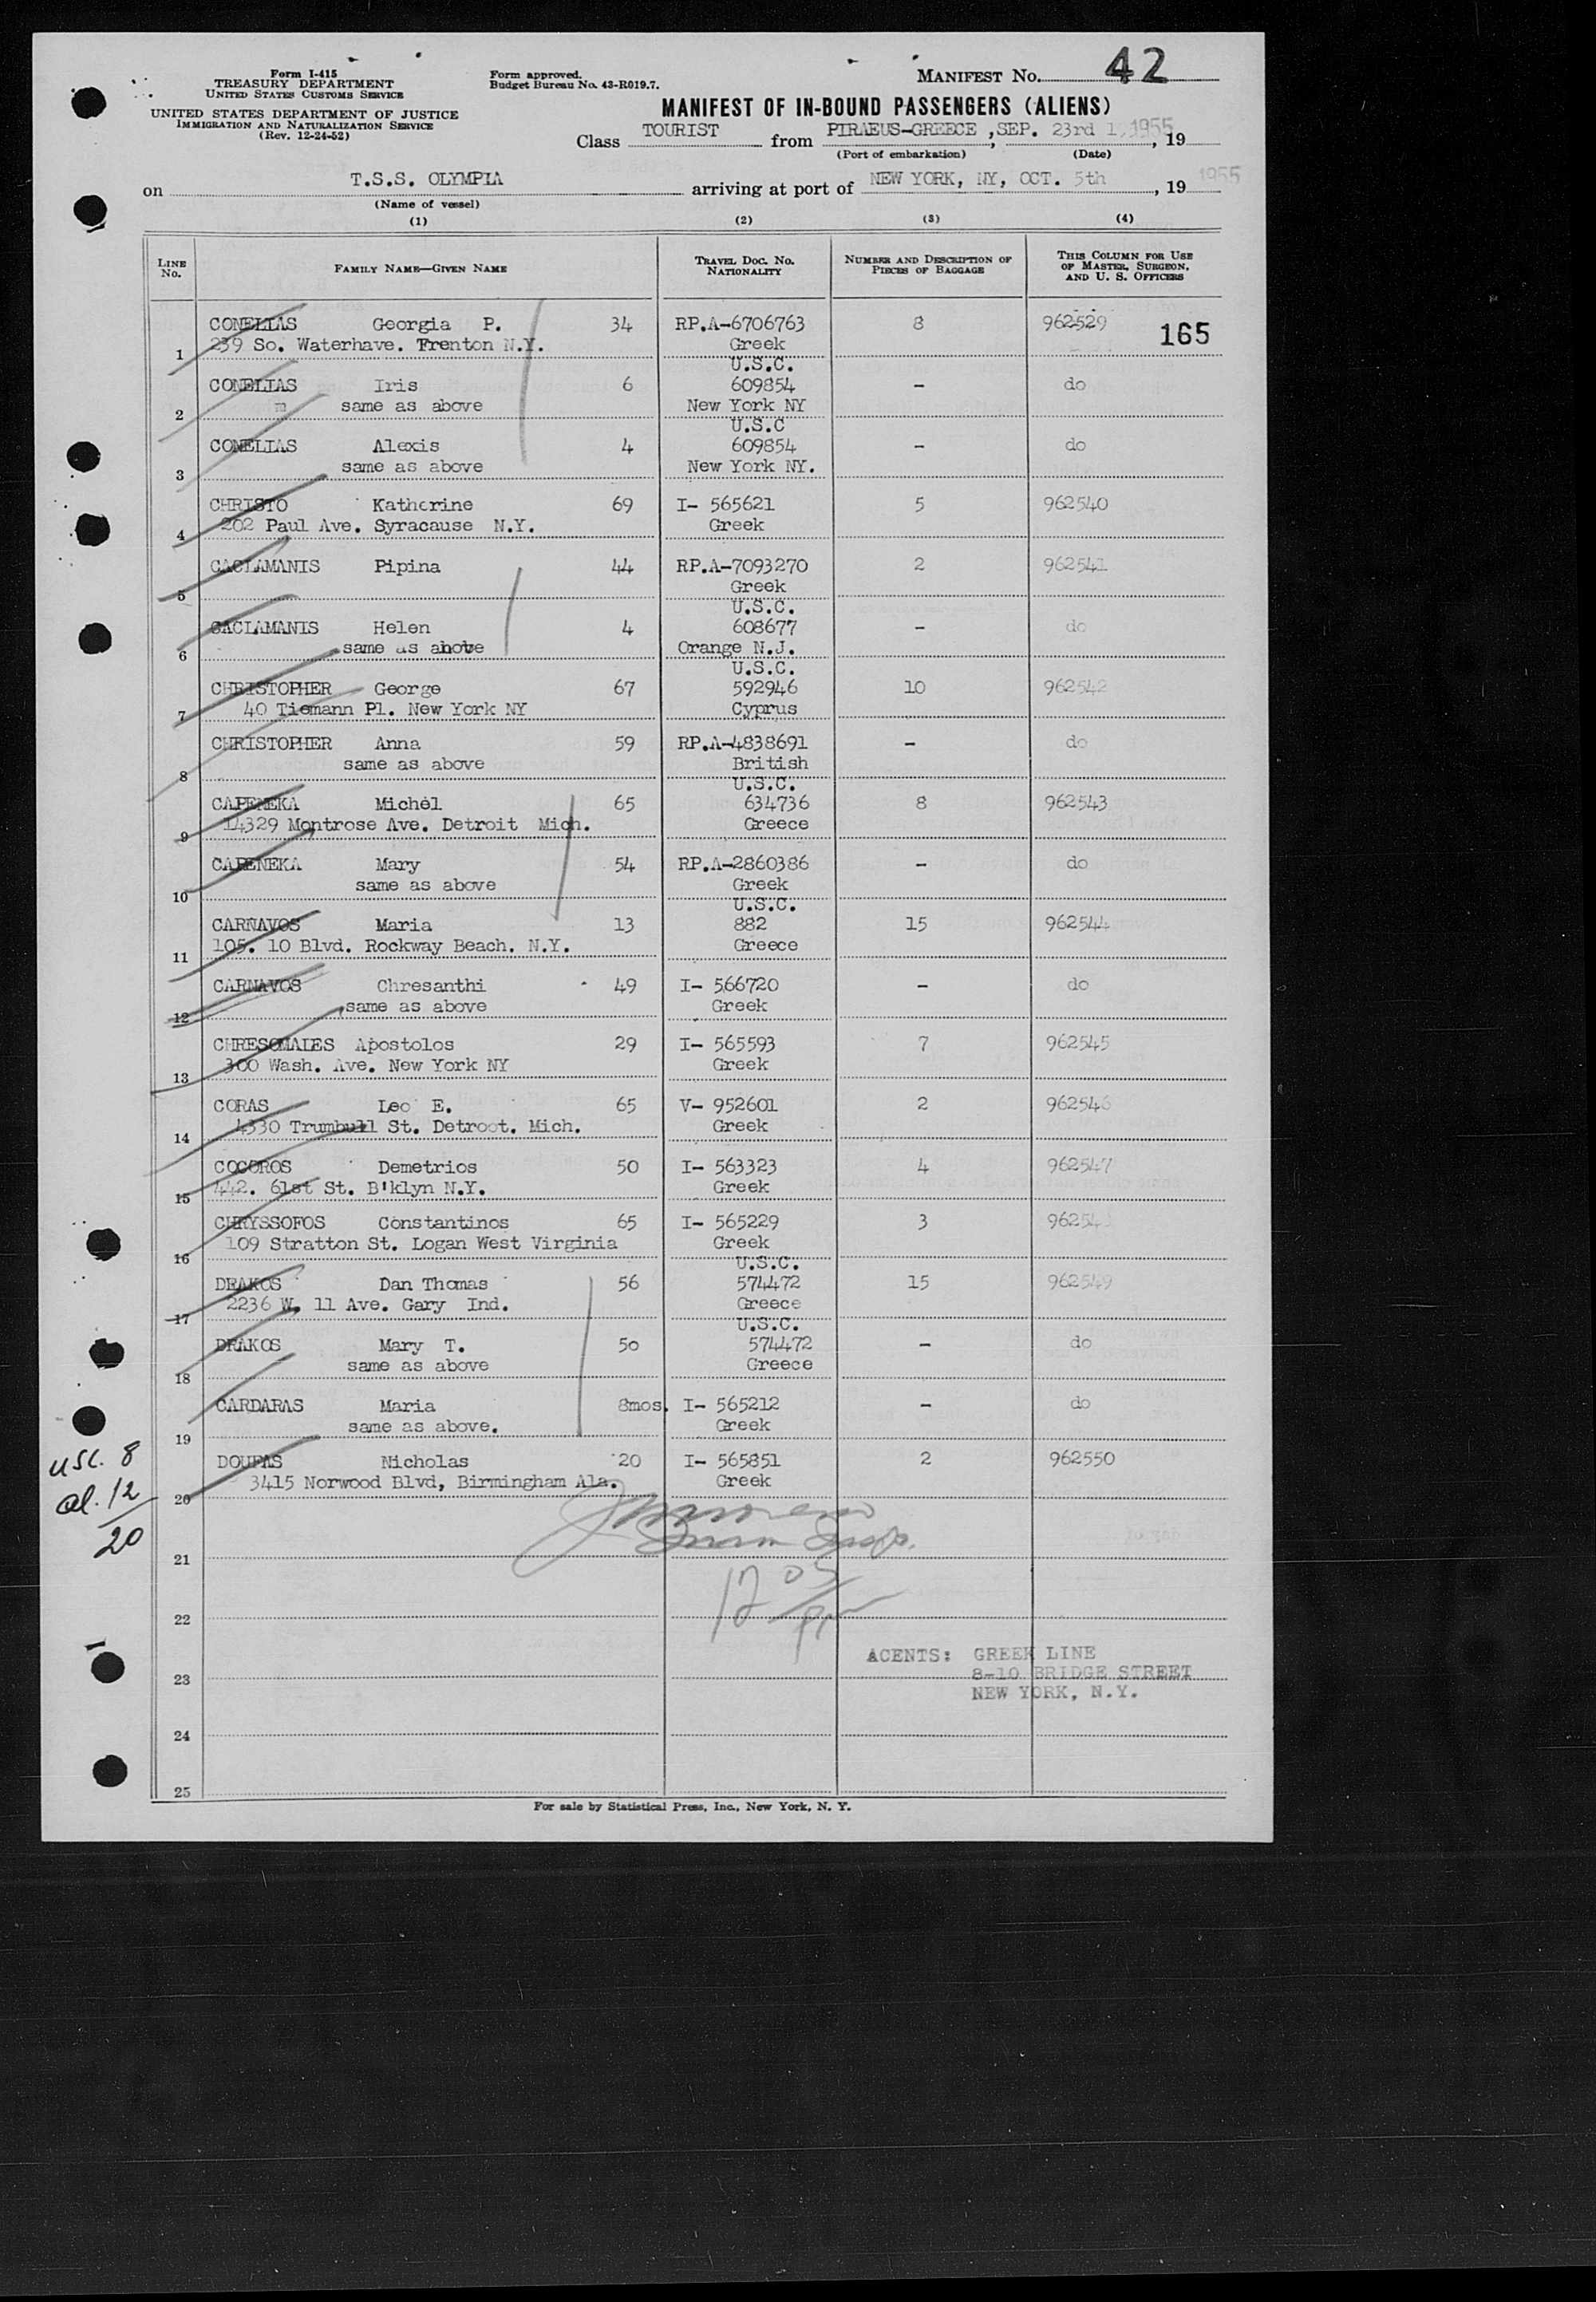 Form I-415
TREASURY DEPARTMENT
UNITED STATES CUSTOMS SERVICE
UNITED STATES DEPARTMENT OF JUSTICE
IMMIGRATION AND NATURALIZATION SERVICE
(Rev. 12-24-52)
Form approved.
Budget Bureau No. 43-R019.7.
MANIFEST NO. 42
MANIFEST OF IN-BOUND PASSENGERS (ALIENS)
Class TOURIST from PIRAEUS-GREECE , SEP. 23rd 1955, 19
(Port of embarkation) (Date)
on T.S.S. OLYMPIA arriving at port of NEW YORK, NY, OCT. 5th , 19 1955
(Name of vessel)
(1) (2) (3) (4)
LINE No. FAMILY NAME—GIVEN NAME TRAVEL DOC. NO. NATIONALITY NUMBER AND DESCRIPTION OF PIECES OF BAGGAGE THIS COLUMN FOR USE OF MASTER, SURGEON, AND U. S. OFFICERS
165
CONELIAS Georgia P. 34 RP.A-6706763 8 962529
1 239 So. Waterhave. Trenton N.Y. Greek
U.S.C.
CONELIAS Iris 6 609854 - do
2 same as above New York NY
U.S.C
CONELIAS Alexis 4 609854 - do
3 same as above New York NY.
CHRISTO Katherine 69 I- 565621 5 962540
4 202 Paul Ave. Syracause N.Y. Greek
CACLAMANIS Pipina 44 RP.A-7093270 2 962541
5 Greek
U.S.C.
CACLAMANIS Helen 4 608677 - do
6 same as above Orange N.J.
U.S.C.
CHRISTOPHER George 67 592946 10 962542
7 40 Tiemann Pl. New York NY Cyprus
CHRISTOPHER Anna 59 RP.A-4838691 - do
8 same as above British
U.S.C.
CAPENEKA Michel 65 634736 8 962543
9 14329 Montrose Ave. Detroit Mich. Greece
CAPENEKA Mary 54 RP.A-2860386 - do
10 same as above Greek
U.S.C.
CARNAVOS Maria 13 882 15 962544
11 105. 10 Blvd. Rockway Beach. N.Y. Greece
CARNAVOS Chresanthi 49 I- 566720 - do
12 same as above Greek
CHRESOMALES Apostolos 29 I- 565593 7 962545
13 300 Wash. Ave. New York NY Greek
CORAS Leo E. 65 V- 952601 2 962546
14 4330 Trumbull St. Detroot. Mich. Greek
COCOROS Demetrios 50 I- 563323 4 962547
15 442. 61st St. B'klyn N.Y. Greek
CHRYSSOFOS Constantinos 65 I- 565229 3
16 109 Stratton St. Logan West Virginia Greek
U.S.C.
DRAKOS Dan Thomas 56 574472 15 962549
17 2236 W. 11 Ave. Gary Ind. Greece
U.S.C.
DRAKOS Mary T. 50 574472 - do
18 same as above Greece
CARDARAS Maria 8mos. I- 565212 - do
19 same as above. Greek
DOUPAS Nicholas 20 I- 565851 2 962550
20 3415 Norwood Blvd, Birmingham Ala. Greek
usc. 8
al. 12
20
21
12 05 pm
22
ACENTS: GREEK LINE
23 8-10 BRIDGE STREET
NEW YORK, N.Y.
24
25
For sale by Statistical Press, Inc., New York, N. Y.